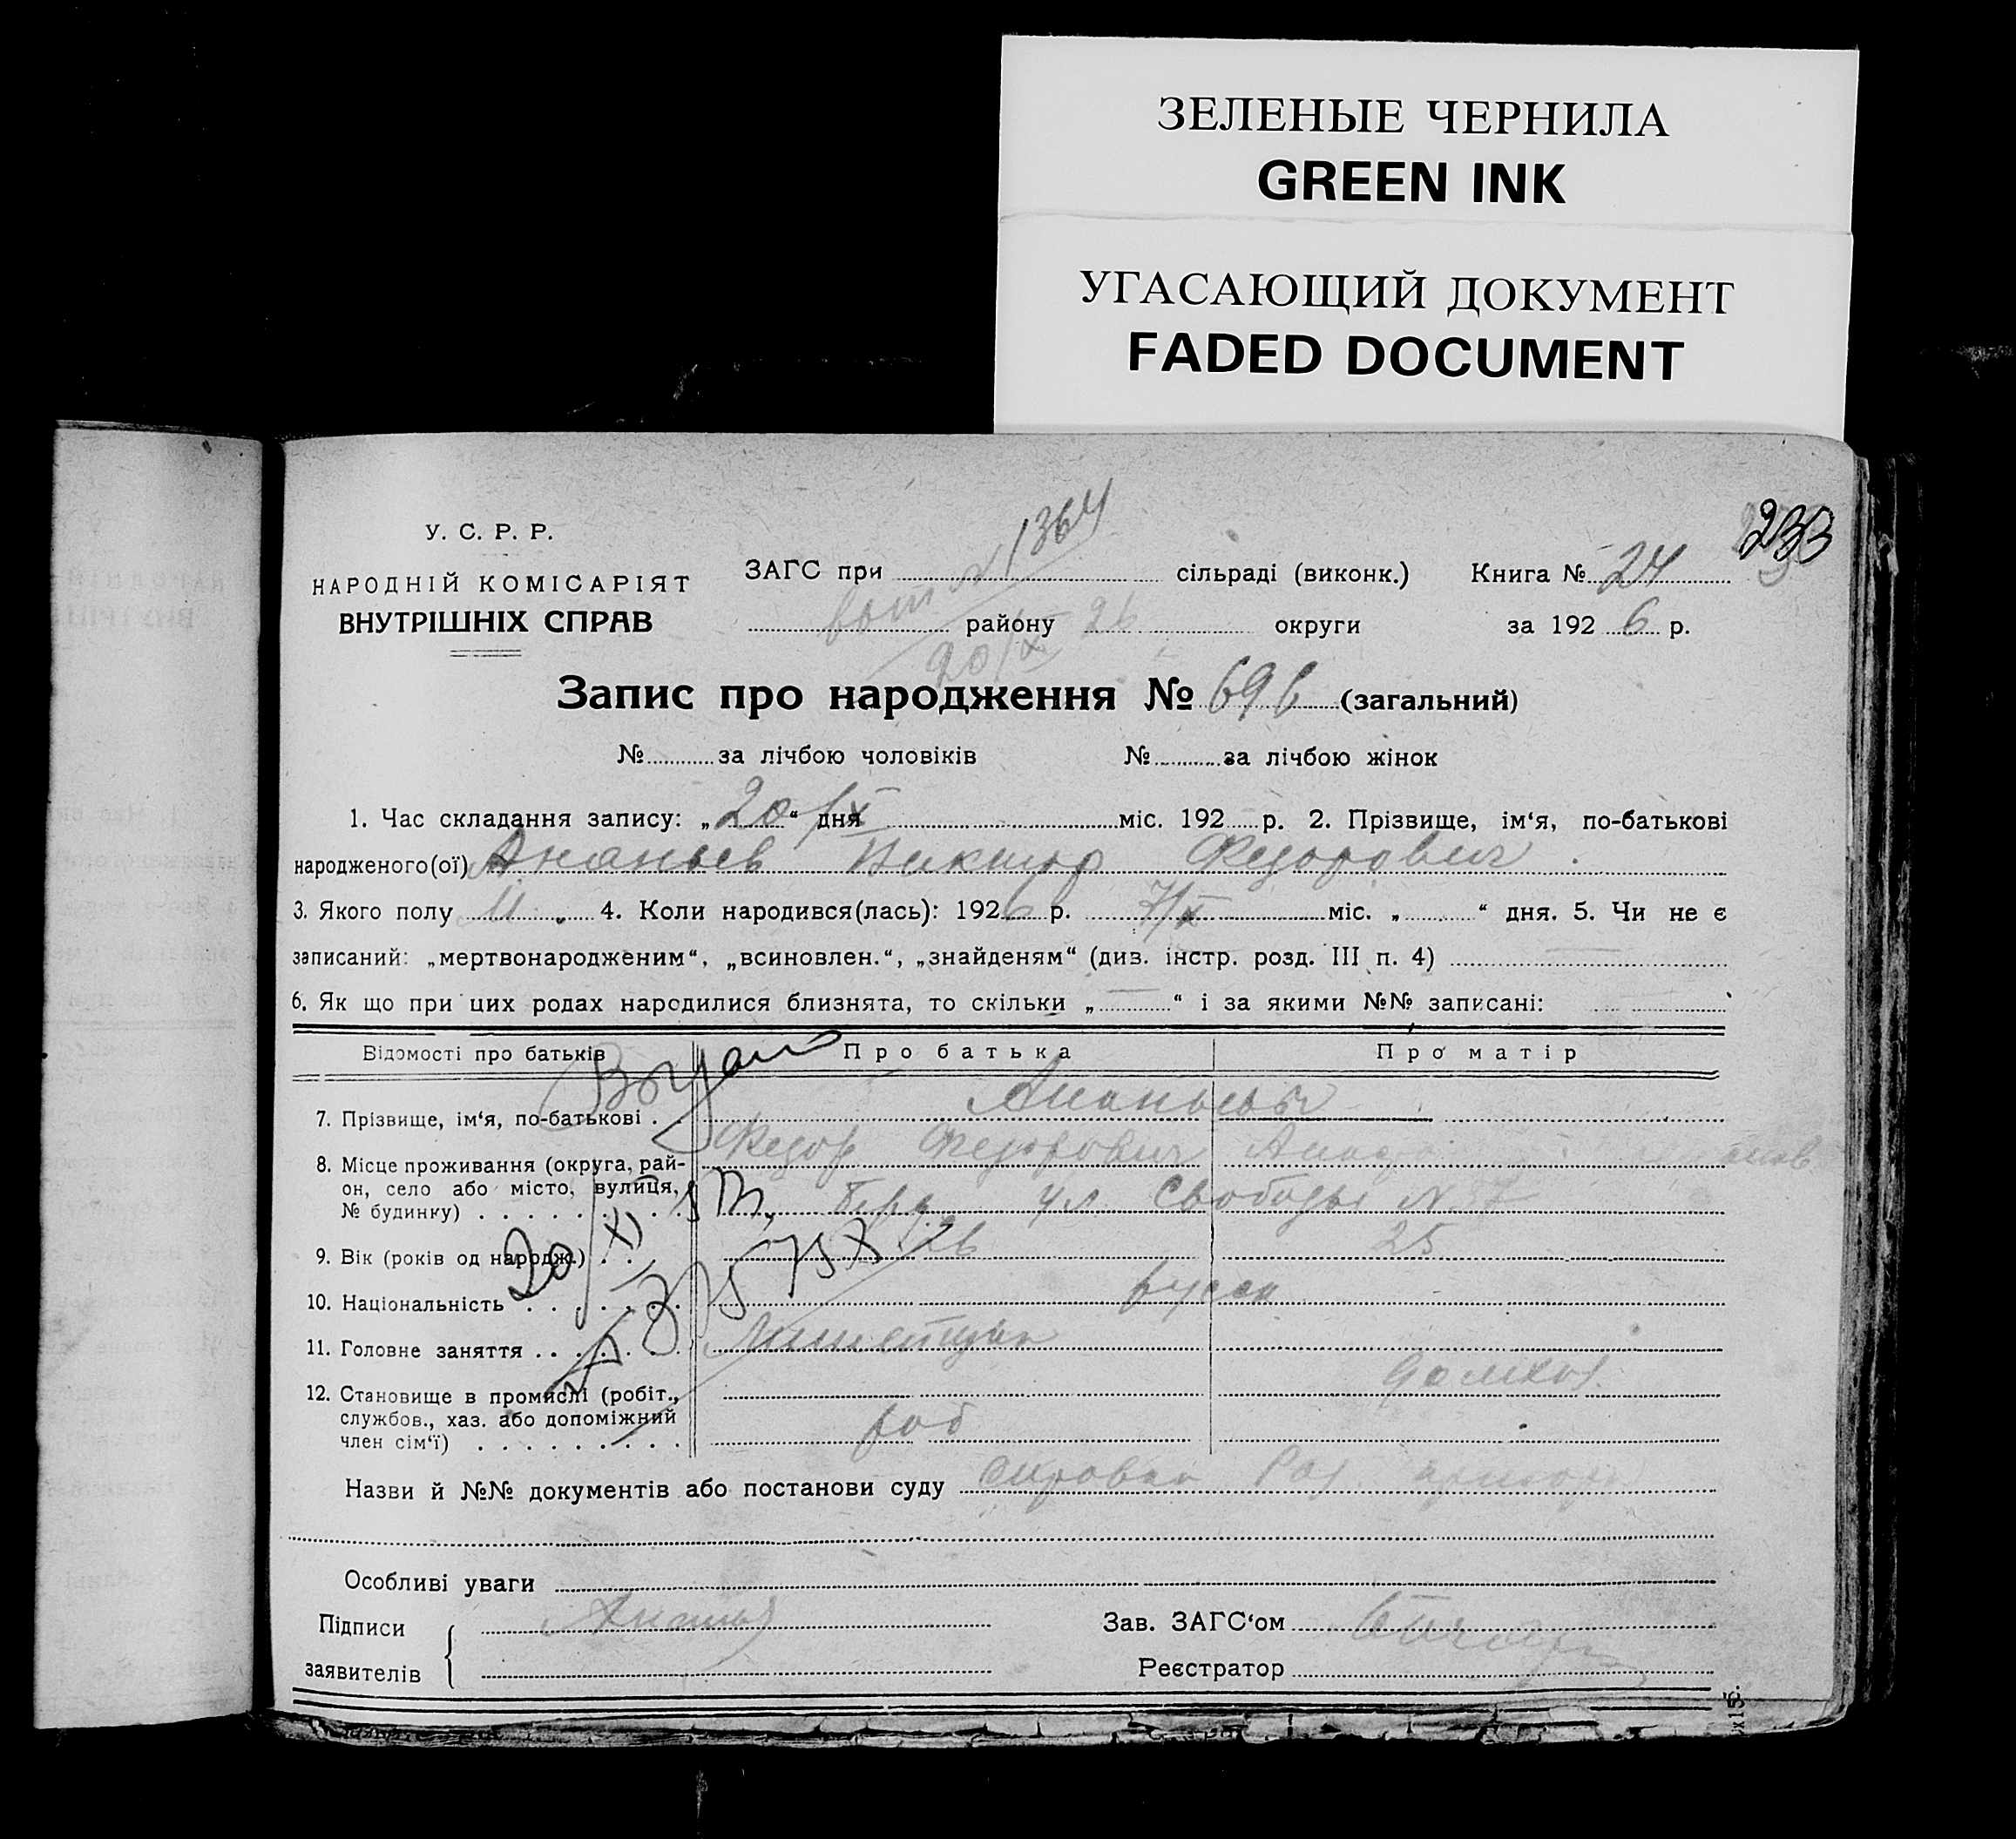 ЗЕЛЕНЫЕ ЧЕРНИЛА
GREEN INK
УГАСАЮЩИЙ ДОКУМЕНТ
FADED DOCUMENT
233
У. С. Р. Р.
НАРОДНІЙ КОМІСАРІЯТ
ВНУТРІШНІХ СПРАВ
ЗАГС при 1364 сільраді (виконк.) Книга № 24
району 26 округи за 192 6 р.
20/X
Запис про народження № 696 (загальний)
№ за лічбою чоловіків № за лічбою жінок
1. Час складання запису: „20/X“ дня міс. 192 р. 2. Прізвище, ім‘я, по-батькові
народженого(ої) Ананьев Виктор Федорович.
3. Якого полу М. 4. Коли народився(лась): 1926 р. 7/X міс. „ “ дня. 5. Чи не є
записаний: „мертвонародженим“, „всиновлен.“, „знайденям“ (див. інстр. розд. III п. 4)
6. Як що при цих родах народилися близнята, то скільки „ “ і за якими №№ записані:
Відомості про батьків Про батька Про матір
7. Прізвище, ім‘я, по-батькові .
Федор Федорович
8. Місце проживання (округа, рай-
он, село або місто, вулиця,
№ будинку) ул. Свободы N 7
9. Вік (років од народж.) 26 25
10. Національність
11. Головне заняття
12. Становище в промислі (робіт.,
службов., хаз. або допоміжний
член сім‘ї) роб
Назви й №№ документів або постанови суду
Особливі уваги
Підписи Зав. ЗАГС‘ом
заявителів Реєстратор